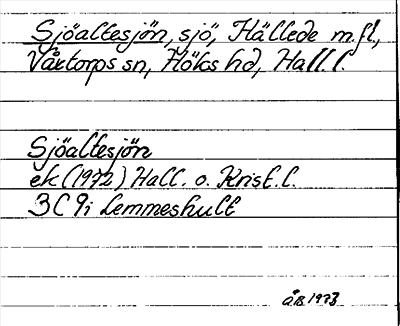 Sjöaltesjön, sjö, Hällede m.fl.,
Våxtorps sn, Höks hd, Hall.l.
Sjöaltesjön
ek (1972) Hall. o. Krist.l.
3C 9i Lemmeshult
ÅB 1973